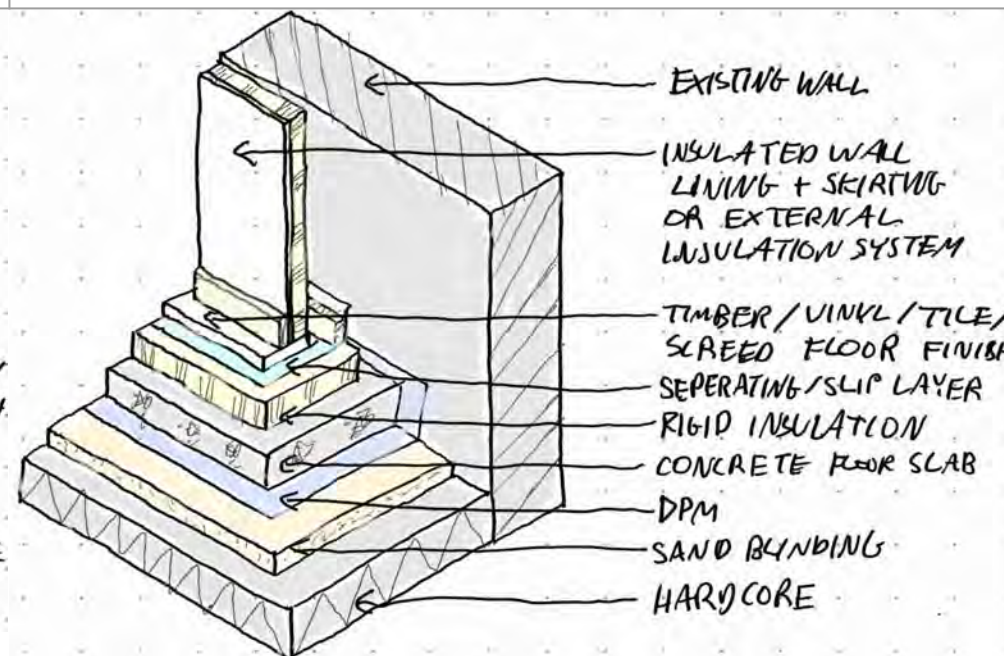 EXISTING WALL
INSULATED WALL
LINING + SKIRTING
OR EXTERNAL
INSULATION SYSTEM
TIMBER/VINYL/TILE/
SCREED FLOOR FINISH
SEPERATING/SLIP LAYER
RIGID INSULATION
CONCRETE FLOOR SLAB
DPM
SAND BLINDING
HARDCORE